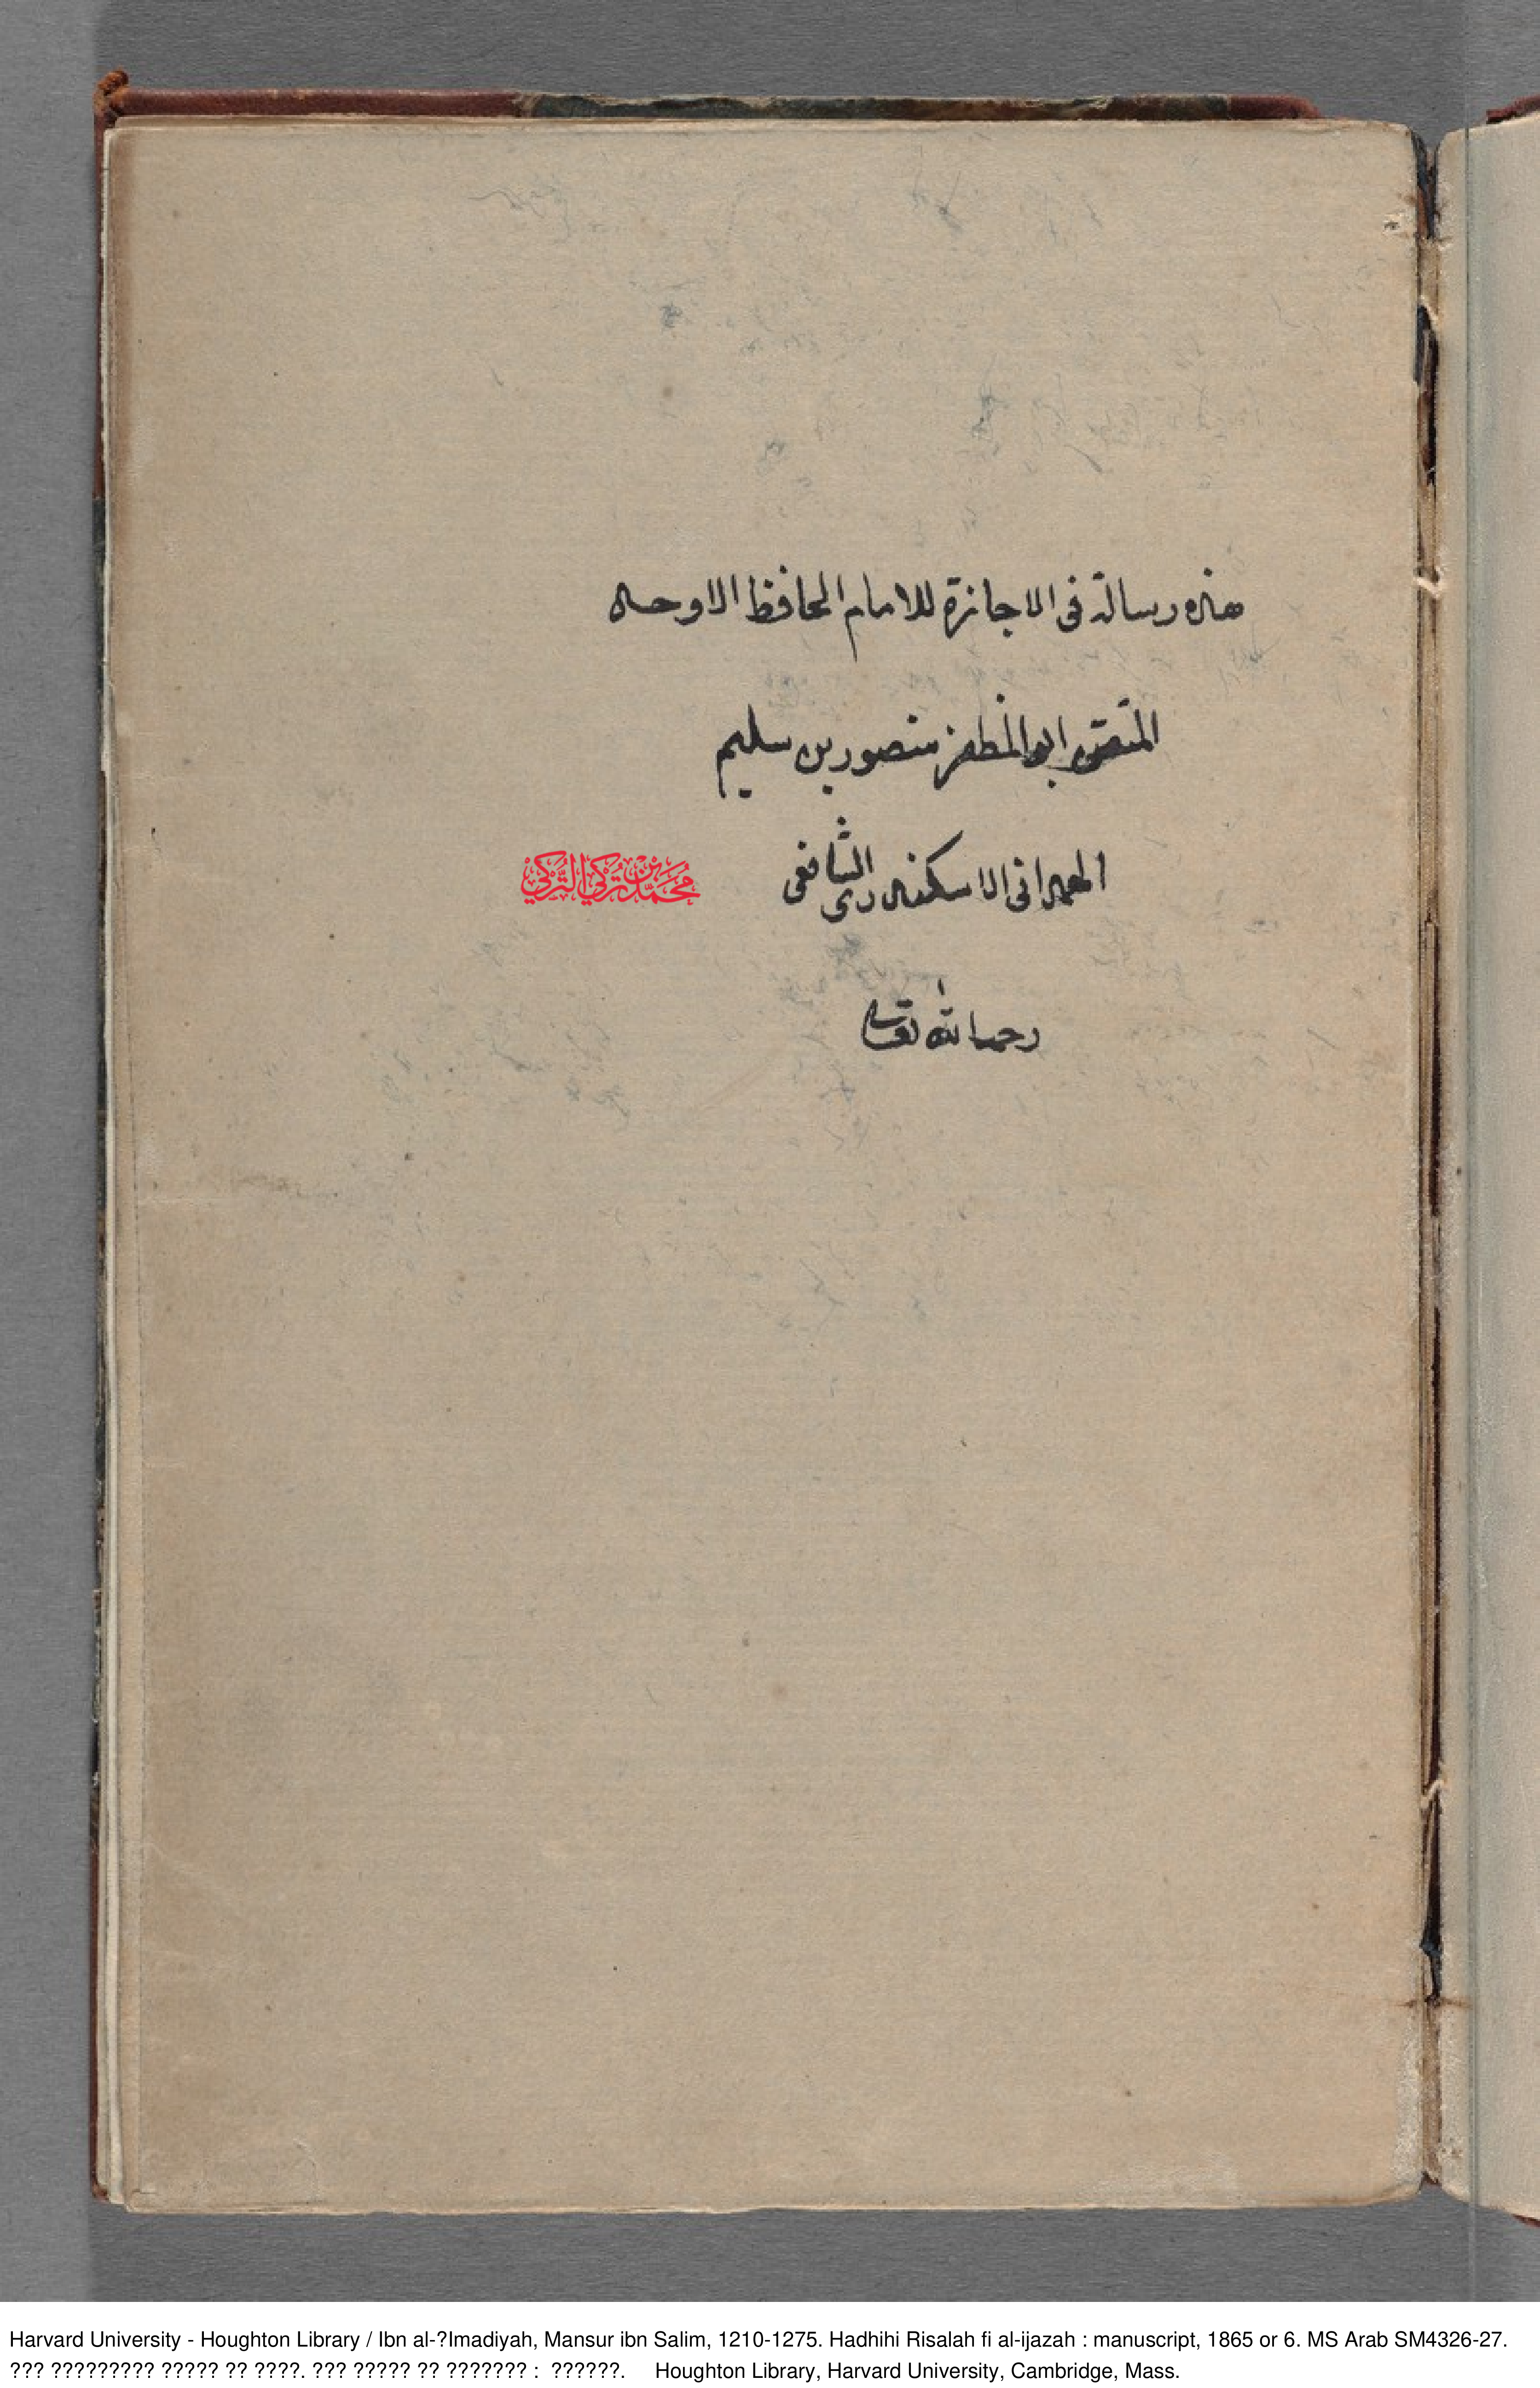 هذه رسالة فى الاجازة للامام الحافظ الاوحد
المتقن ابو المظفر منصور بن سليم
الهمدانى الاسكندرى الشافعى
مُحَمَّدُ بْنُ تُرْكِي التُّرْكِي
رحمه الله تعالى
Harvard University - Houghton Library / Ibn al-?Imadiyah, Mansur ibn Salim, 1210-1275. Hadhihi Risalah fi al-ijazah : manuscript, 1865 or 6. MS Arab SM4326-27.
??? ????????? ????? ?? ????. ??? ????? ?? ??????? : ??????. Houghton Library, Harvard University, Cambridge, Mass.